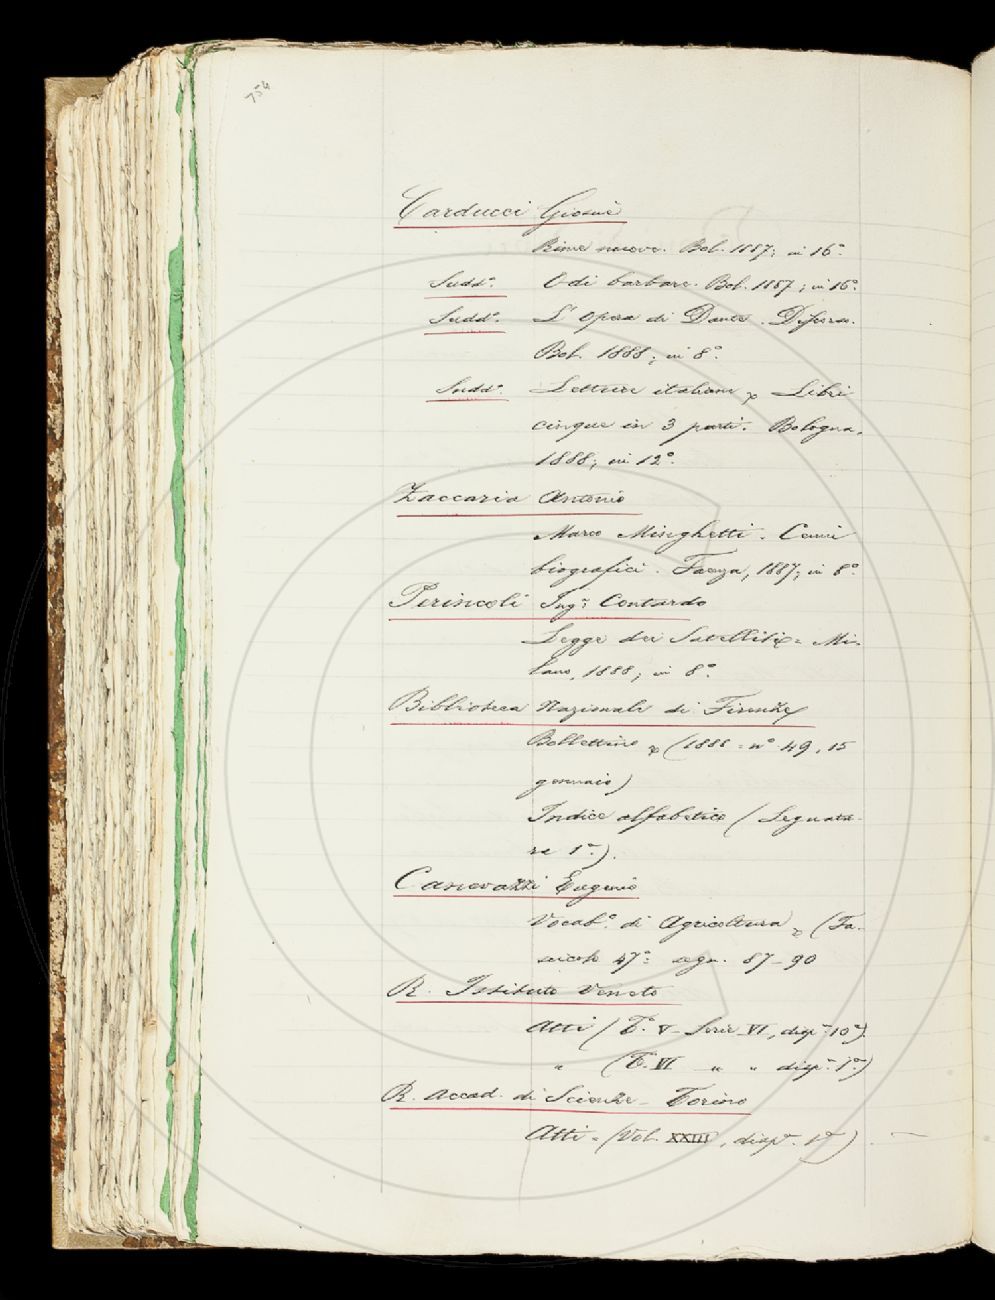 754
Carducci Giosuè
Rime nuove. Bol. 1887; in 16°.
Sudd°. Odi barbare. Bol. 1887; in 16°.
Sudd°. L'opera di Dante. Discorso.
Bol. 1888; in 8°.
Sudd°. Letture italiane Libri
cinque in 3 parti. Bologna,
1888; in 12°.
Zaccaria Antonio
Marco Minghetti. Cenni
biografici. Faenza, 1887; in 8°.
Perincoli Ing: Contardo
Legge dei Satelliti = Mi-
lano, 1888; in 8°.
Biblioteca Nazionale di Firenze
Bollettino (1888 = n° 49, 15
gennaio)
Indice alfabetico (Segnatu-
re 1ª.).
Canevazzi Eugenio
Vocab°. di Agricoltura (Fa-
scicolo 47°: segn. 87-90
R. Istituto Veneto
Atti (T. V - Serie VI, disp. 10ª)
" (T. VI " " disp. 1ª)
R. Accad. di Scienze - Torino
Atti = (Vol. XXIII, disp. 1ª)